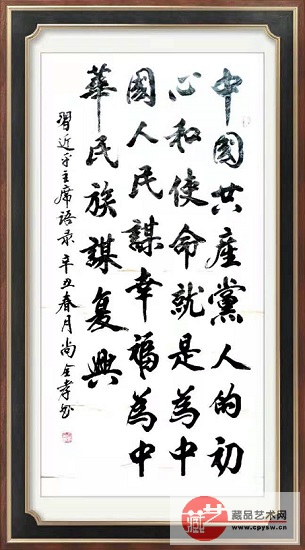 中國共產黨人的初
心和使命就是為中
國人民謀幸福為中
華民族謀复興
習近平主席語录 辛丑春月 尚全孝书
藏艺
藏品艺术网
www.cpysw.cn